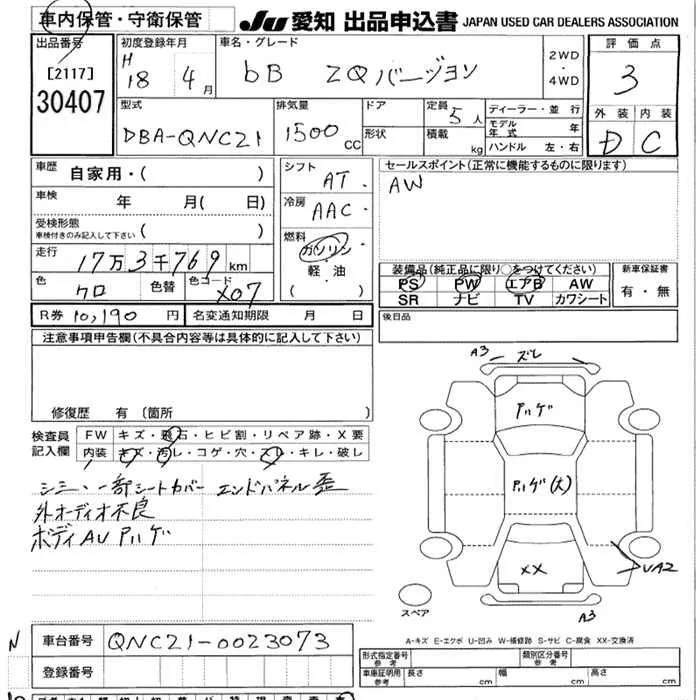 車内保管・守衛保管
JU 愛知 出品申込書 JAPAN USED CAR DEALERS ASSOCIATION
出品番号
[2117]
30407
初度登録年月
H
18 4月
車名・グレード
bB ZQバージョン
2WD
・
4WD
評価点
3
外装 内装
D C
型式
DBA-QNC21
排気量
1500cc
ドア
形状
定員 5人
積載 kg
ディーラー・並行
モデル年式 年
ハンドル 左・右
車歴 自家用・( )
車検 年 月( 日)
受検形態
車検付きのみ記入して下さい ( )
走行
17万3千769km
色 クロ
色替
色コード X07
シフト AT
冷房 AAC
燃料
ガソリン
軽・油
( )
セールスポイント(正常に機能するものに限ります)
AW
装備品(純正品に限り○をつけてください)
PS PW エアB AW
SR ナビ TV カワシート
新車保証書
有・無
R券 10,190円
名変通知期限 月 日
後日品
注意事項申告欄(不具合内容等は具体的に記入して下さい)
修復歴 有(箇所
検査員
記入欄
FW キズ・飛石・ヒビ割・リペア跡・X要
内装 キズ・汚レ・コゲ・穴・スレ・キレ・破レ
シミ、一部シートカバー エンドパネル歪
外オーディオ不良
ボディAUアハゲ
A3 ズレ
アハゲ
アハゲ(大)
XX
UA2
A3
スペア
A-キズ E-エクボ U-凹み W-補修跡 S-サビ C-腐食 XX-交換済
N
車台番号 QNC21-0023073
登録番号
形式指定番号
参考
類別区分番号
参考
車庫証明用
参考
長さ cm
幅 cm
高さ cm